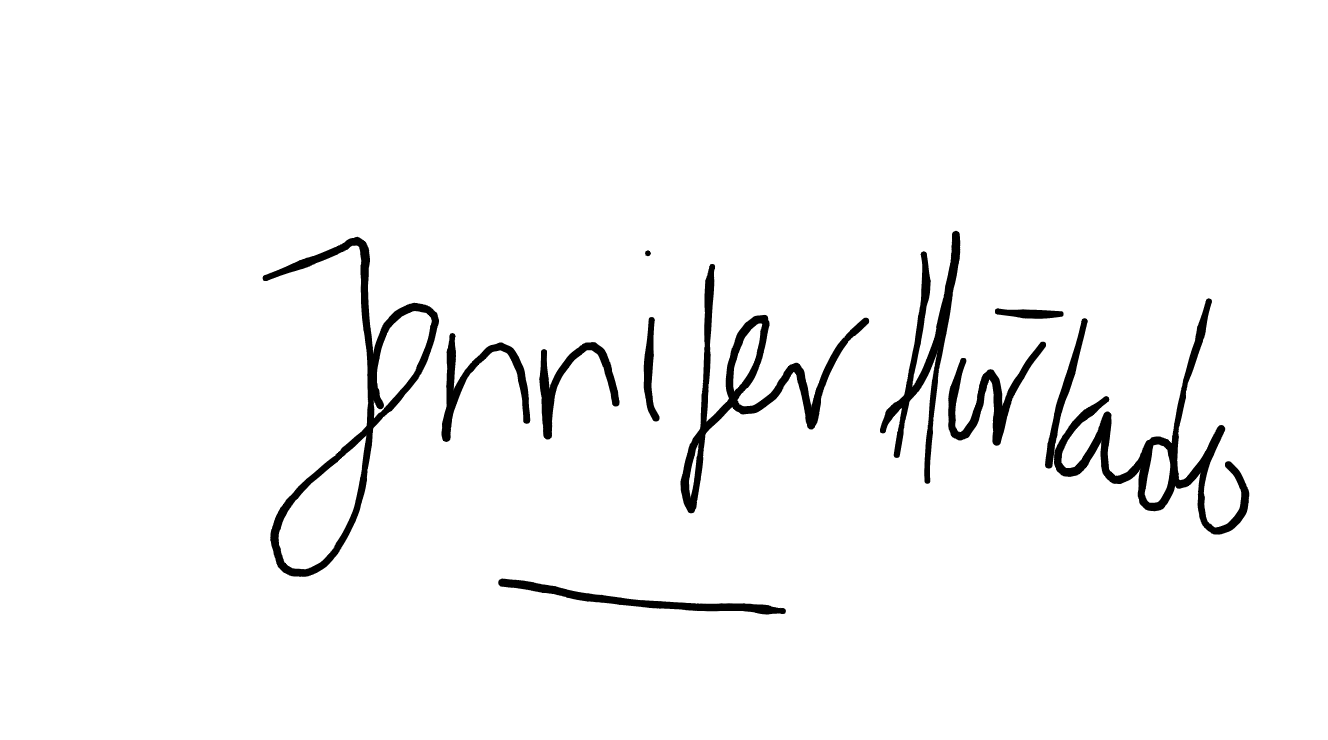 Jennifer Hurtado